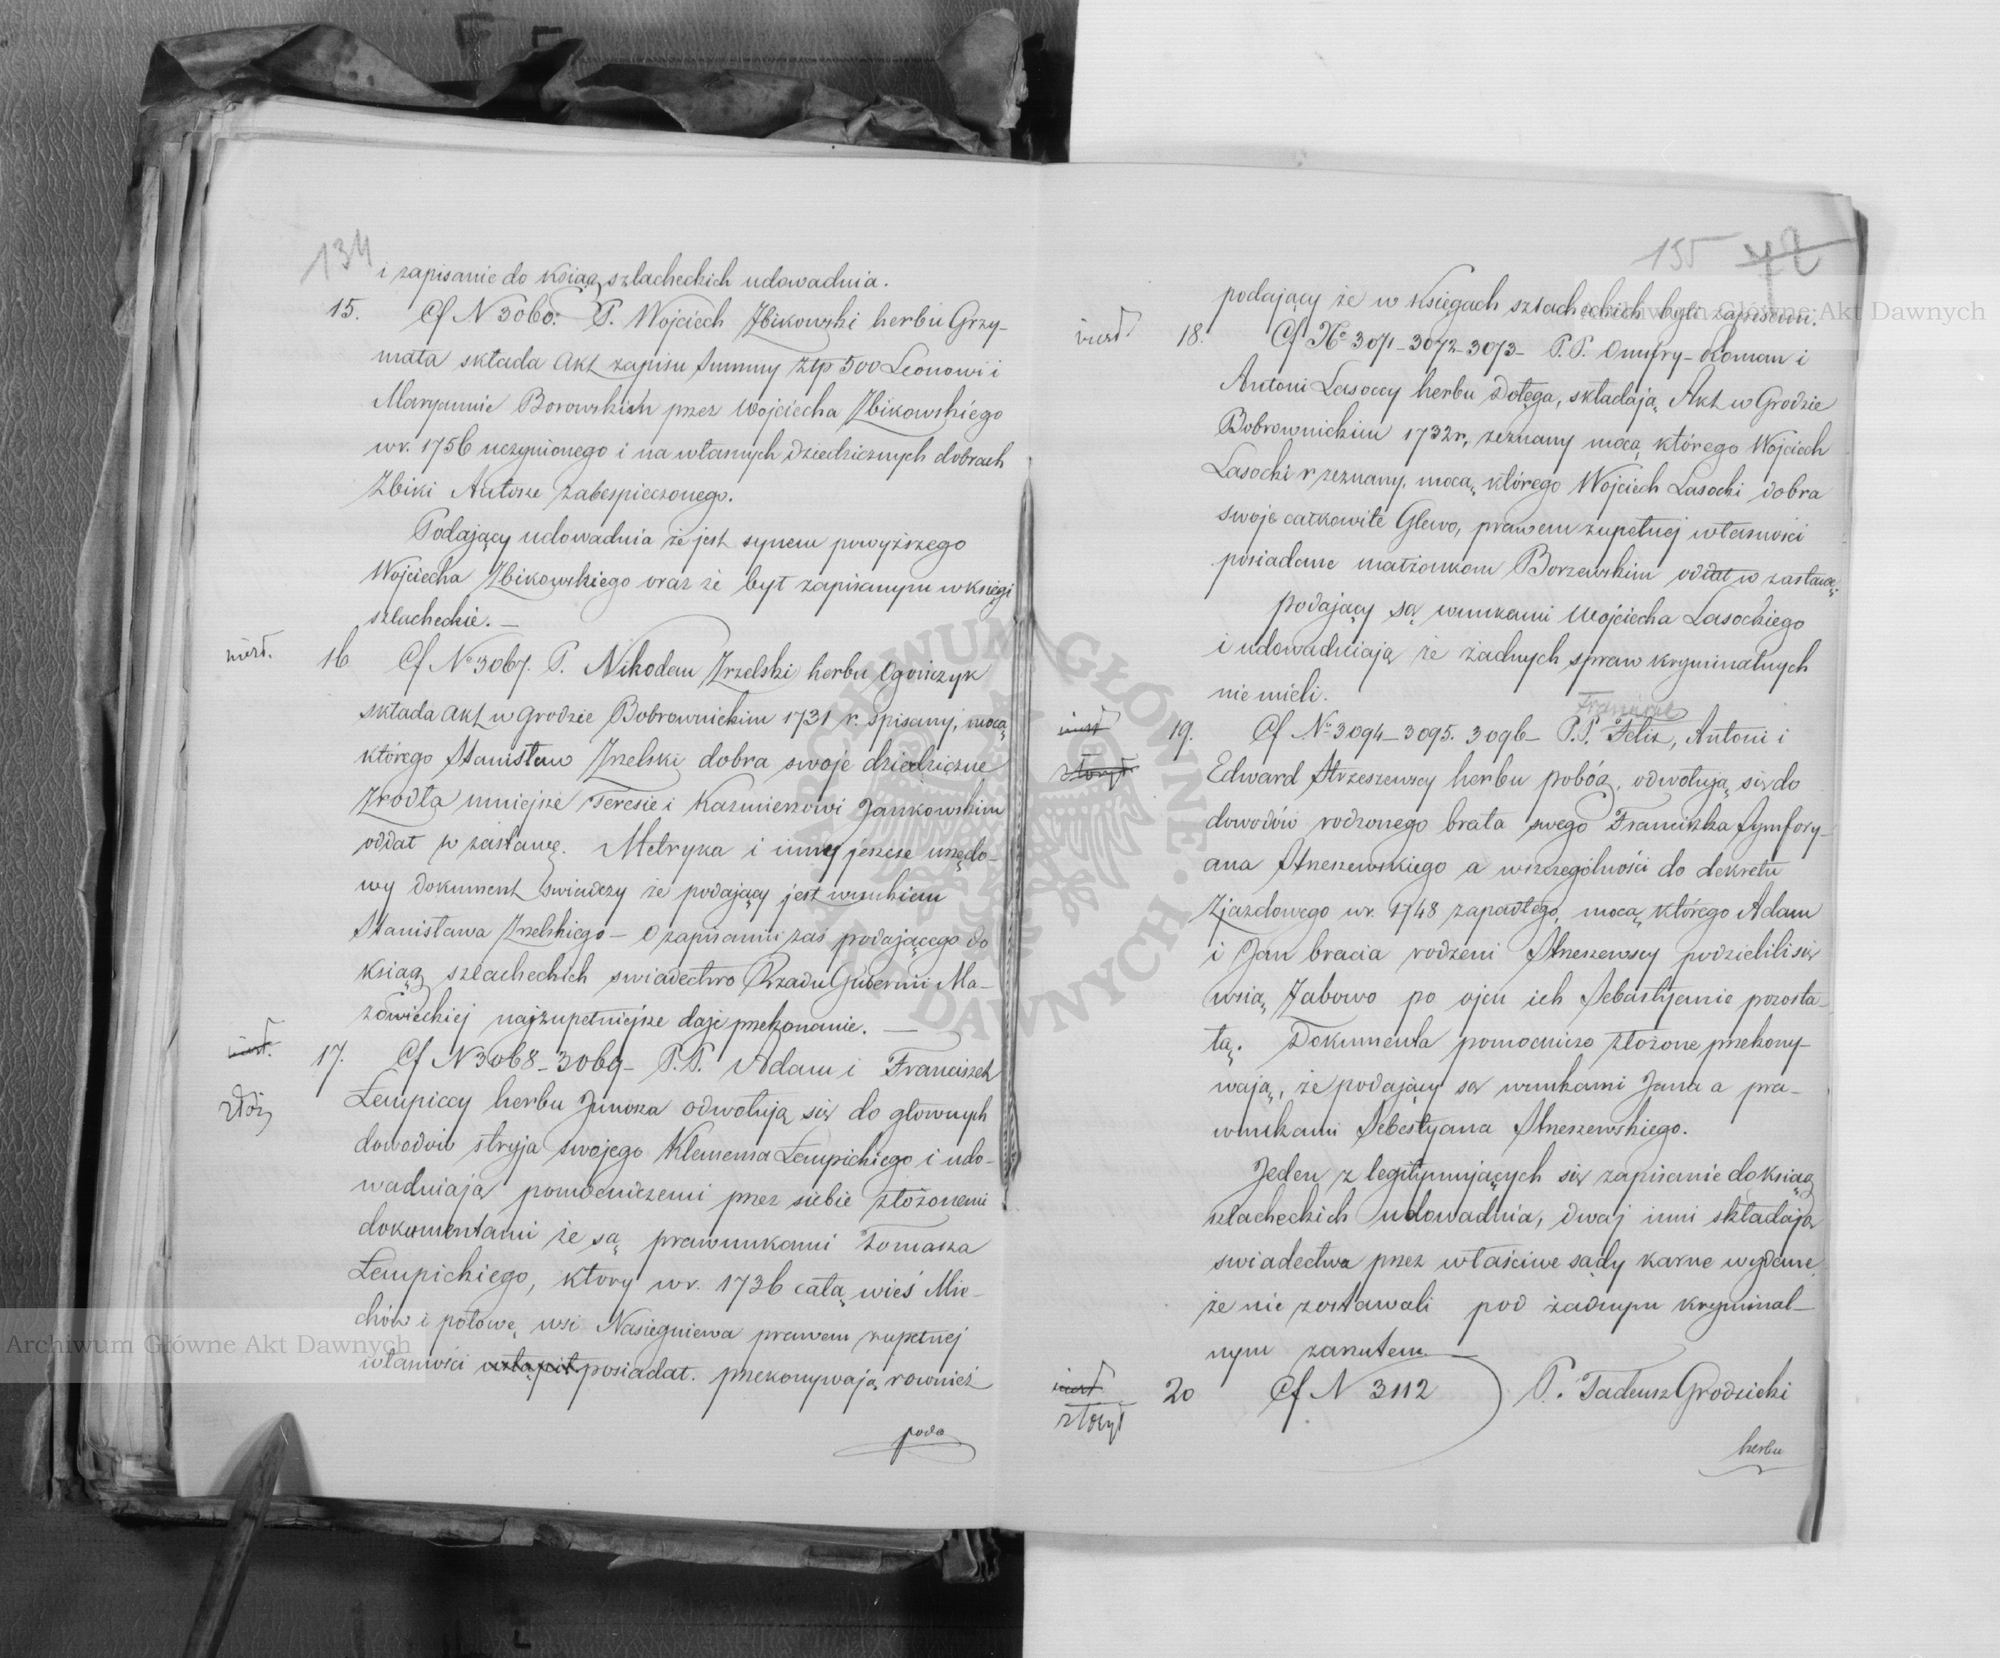 134
i zapisanie do Ksiąg szlacheckich udowadnia.
15. Cf N 3060. P. Wojciech Zbikowski herbu Grzy-
mała składa Akt zapisu summy złp 500 Leonowi i
Maryannie Borowskim przez Wojciecha Zbikowskiego
w r. 1756 uczynionego i na własnych dziedzicznych dobrach
Zbiki Antosze zabespieczonego.
Podający udowadnia że jest synem powyższego
Wojciecha Zbikowskiego oraz że był zapisanym w księgi
szlacheckie. —
16 Cf No 3067. P. Nikodem Zrzelski herbu Ogończyk
składa akt w Grodzie Bobrownickim 1731 r. spisany, mocą
którego Stanisław Zrzelski dobra swoje dziedziczne
Zrodła mniejsze Teresie i Kazimierzowi Jankowskim
oddał w zastawę. Metryka i inny jeszcze urzędo-
wy dokument świadczy że podający jest wnukiem
Stanisława Zrzelskiego — O zapisaniu zaś podającego do
ksiąg szlacheckich swiadectwo Rządu Gubernii Ma-
zowieckiej najzupełniejsze daje przekonanie. —
17. Cf N 3068 - 3069 - P.P. Adam i Franciszek
Łempiccy herbu Junosza odwołują się do głównych
dowodów stryja swojego Klemensa Łempickiego i udo-
wadniają pomocniczemi przez siebie złożonemi
dokumentami że są prawnukami Tomasza
Łempickiego, ktory w r. 1736 całą wieś Mie-
chów i połowę wsi Nasiegniewa prawem zupełnej
własności wstąpił posiadał. przekonywają rownież
złoż
poda
155 72
podający że w Księgach szlacheckich byli zapisani.
18. Cf No 3071 - 3072 - 3073 - P.P. Onufry - Roman i
Antoni Lasoccy herbu Dołęga, składają Akt w Grodzie
Bobrownickim 1732 r, zeznany mocą którego Wojciech
Lasocki r zeznany. mocą którego Wojciech Lasocki dobra
swoje całkowite Glewo, prawem zupełnej własności
posiadane małżonkom Borzewskim oddał w zastawę
podający są wnukami Wojciecha Lasockiego
i udowadniają że żadnych spraw kryminalnych
nie mieli.
19. Cf No 3094 - 3095. 3096 - P.P. Felix, Antoni i
Edward Strzeszewscy herbu pobóg, odwołują się do
dowodów rodzonego brata swego Franciszka Symfory-
ana Strzeszewskiego a wszczególności do dekretu
Zjazdowego w r. 1748 zapadłego, mocą którego Adam
i Jan bracia rodzeni Strzeszewscy podzielili się
wsią Zabowo po ojcu ich Sebastyanie pozosta-
łą. Dokumenta pomocniczo złożone przekony-
wają, że podający są wnukami Jana a pra-
wnukami Sebestyana Strzeszewskiego.
Jeden z legitymujących się zapisanie do ksiąg
szlacheckich udowadnia, dwaj inni składają
swiadectwa przez właściwe sądy karne wydane
że nie zostawali pod żadnym kryminal-
nym zarzutem. —
20 Cf N 3112 P. Tadeusz Grodzicki
złożył
herbu
Archiwum Główne Akt Dawnych
Archiwum Główne Akt Dawnych
ARCHIWUM GŁÓWNE AKT DAWNYCH